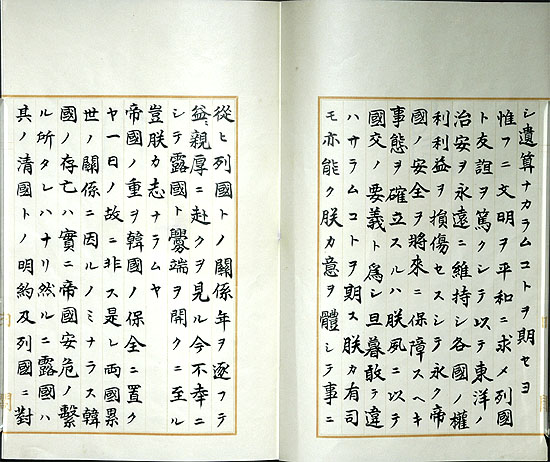 シ遺算ナカラムコトヲ期セヨ
惟フニ文明ヲ平和ニ求メ列國
ト友誼ヲ篤クシテ以テ東洋ノ
治安ヲ永遠ニ維持シ各國ノ權
利利益ヲ損傷セスシテ永ク帝
國ノ安全ヲ將來ニ保障スヘキ
事態ヲ確立スルハ朕夙ニ以テ
國交ノ要義ト爲シ旦暮敢テ違
ハサラムコトヲ期ス朕カ有司
モ亦能ク朕カ意ヲ體シテ事ニ
從ヒ列國トノ關係年ヲ逐フテ
益〻親厚ニ赴クヲ見ル今不幸ニ
シテ露國ト釁端ヲ開クニ至ル
豈朕カ志ナラムヤ
帝國ノ重ヲ韓國ノ保全ニ置ク
ヤ一日ノ故ニ非ス是レ兩國累
世ノ關係ニ因ルノミナラス韓
國ノ存亡ハ實ニ帝國安危ノ繫
ル所タレハナリ然ルニ露國ハ
其ノ清國トノ明約及列國ニ對